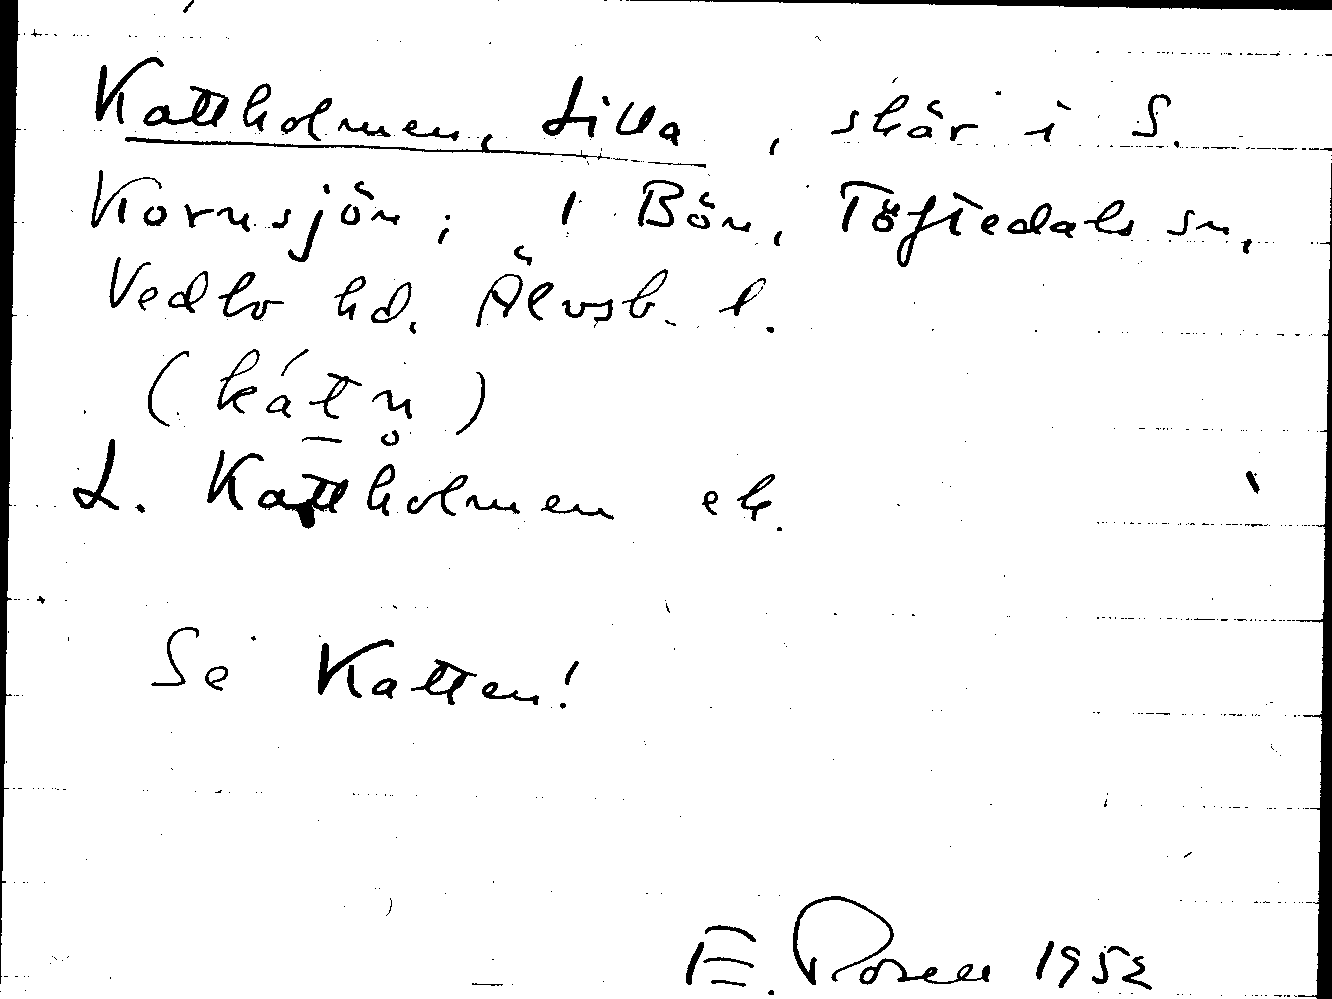 Kattholmen, Lilla, skär i S.
Kornsjön; 1 Bön, Töftedals sn,
Vedbo hd. Älvsb. l.
(ká̱tn̥)
L. Kattholmen ek.
Se Katten!
E. Rosell 1952